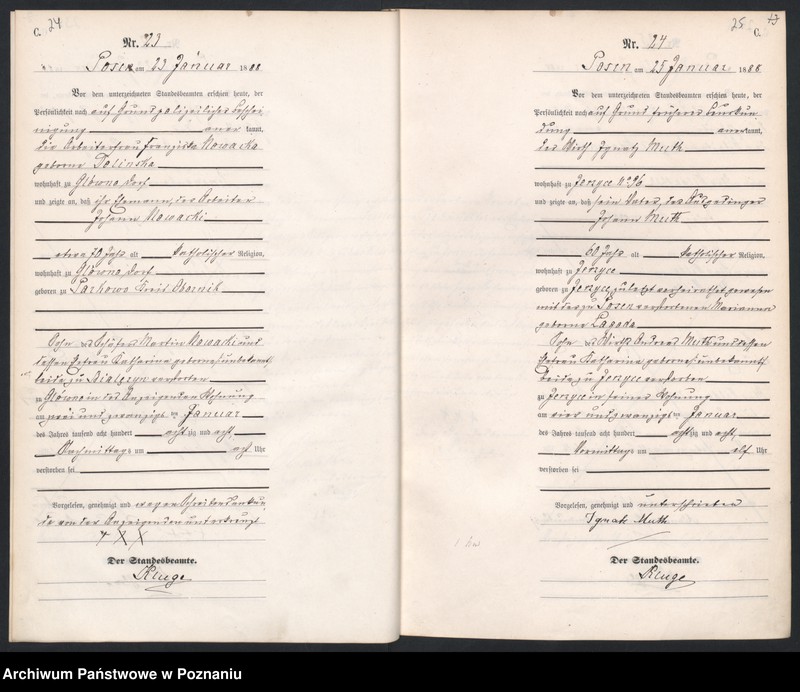 C. 24
Nr. 23
Posen am 23 Januar 1888
Vor dem unterzeichneten Standesbeamten erschien heute, der
Persönlichkeit nach auf Grund polizeilicher Beschei
nigung anerkannt,
die Arbeiterfrau Franziska Nowacka
geborne Dolinska
wohnhaft zu Glowno Dorf
und zeigte an, daß ihr Ehemann, der Arbeiter
Johann Nowacki
etwa 70 Jahr alt katholischer Religion,
wohnhaft zu Glowno Dorf
geboren zu Parkowo Kreis Obornik
Sohn des Schäfers Martin Nowacki und
dessen Ehefrau Katharina geborne (unbekannt)
beide zu verstorben
zu Glowno in der Anzeigenden Wohnung
am zwei und zwanzigsten Januar
des Jahres tausend acht hundert achtzig und acht,
Nachmittags um acht Uhr
verstorben sei
Vorgelesen, genehmigt und wegen Schreibensunkun
de von der Anzeigenden unterkreuzt
XXX
Der Standesbeamte.
Kluge
25 C. 13
Nr. 24
Posen am 25 Januar 1888
Vor dem unterzeichneten Standesbeamten erschien heute, der
Persönlichkeit nach auf Grund früherer Beurkun
dung anerkannt,
der Wirth Ignatz Muth
wohnhaft zu Jerzyce No 96
und zeigte an, daß sein Vater, der Ausgedinger
Johann Muth
60 Jahr alt katholischer Religion,
wohnhaft zu Jerzyce
geboren zu Jerzyce, zuletzt verheirathet gewesen
mit der zu Posen verstorbenen Marianna
geborne
Sohn des Wirths Andreas Muth und dessen
Ehefrau Katharina geborne (unbekannt)
beide zu Jerzyce verstorben
zu Jerzyce in seiner Wohnung
am vier und zwanzigsten Januar
des Jahres tausend acht hundert achtzig und acht,
Vormittags um elf Uhr
verstorben sei
Vorgelesen, genehmigt und unterschrieben
Ignatz Muth
Der Standesbeamte.
Kluge
Archiwum Państwowe w Poznaniu